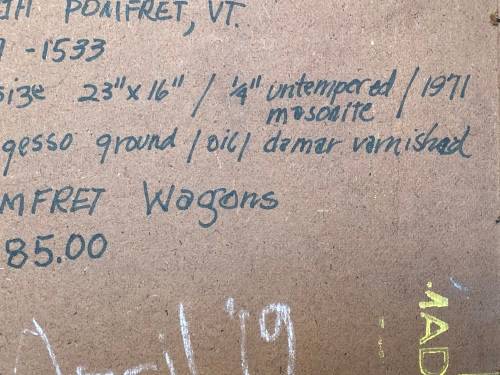 POMFRET, VT.
-1533
size 23"x16" / 1/4" untempered / 1971
masonite
gesso ground / oil / damar varnished
MFRET Wagons
85.00
April '79
MAD